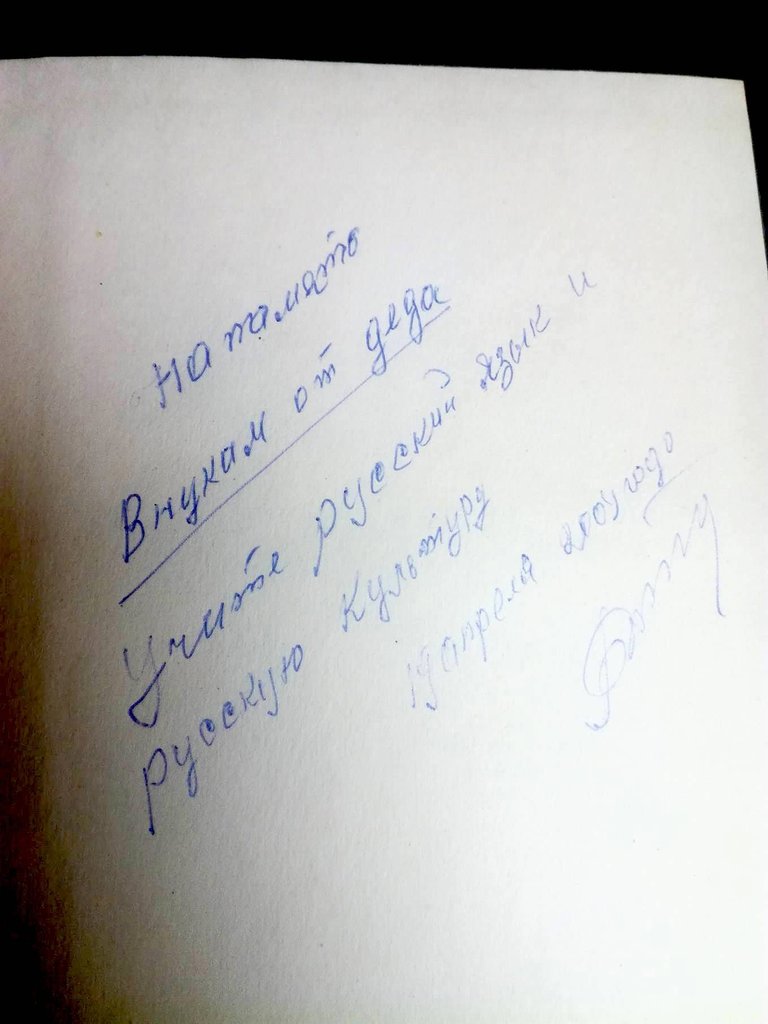 На память
Внукам от деда
Учите русский язык и
русскую культуру
19 апреля года